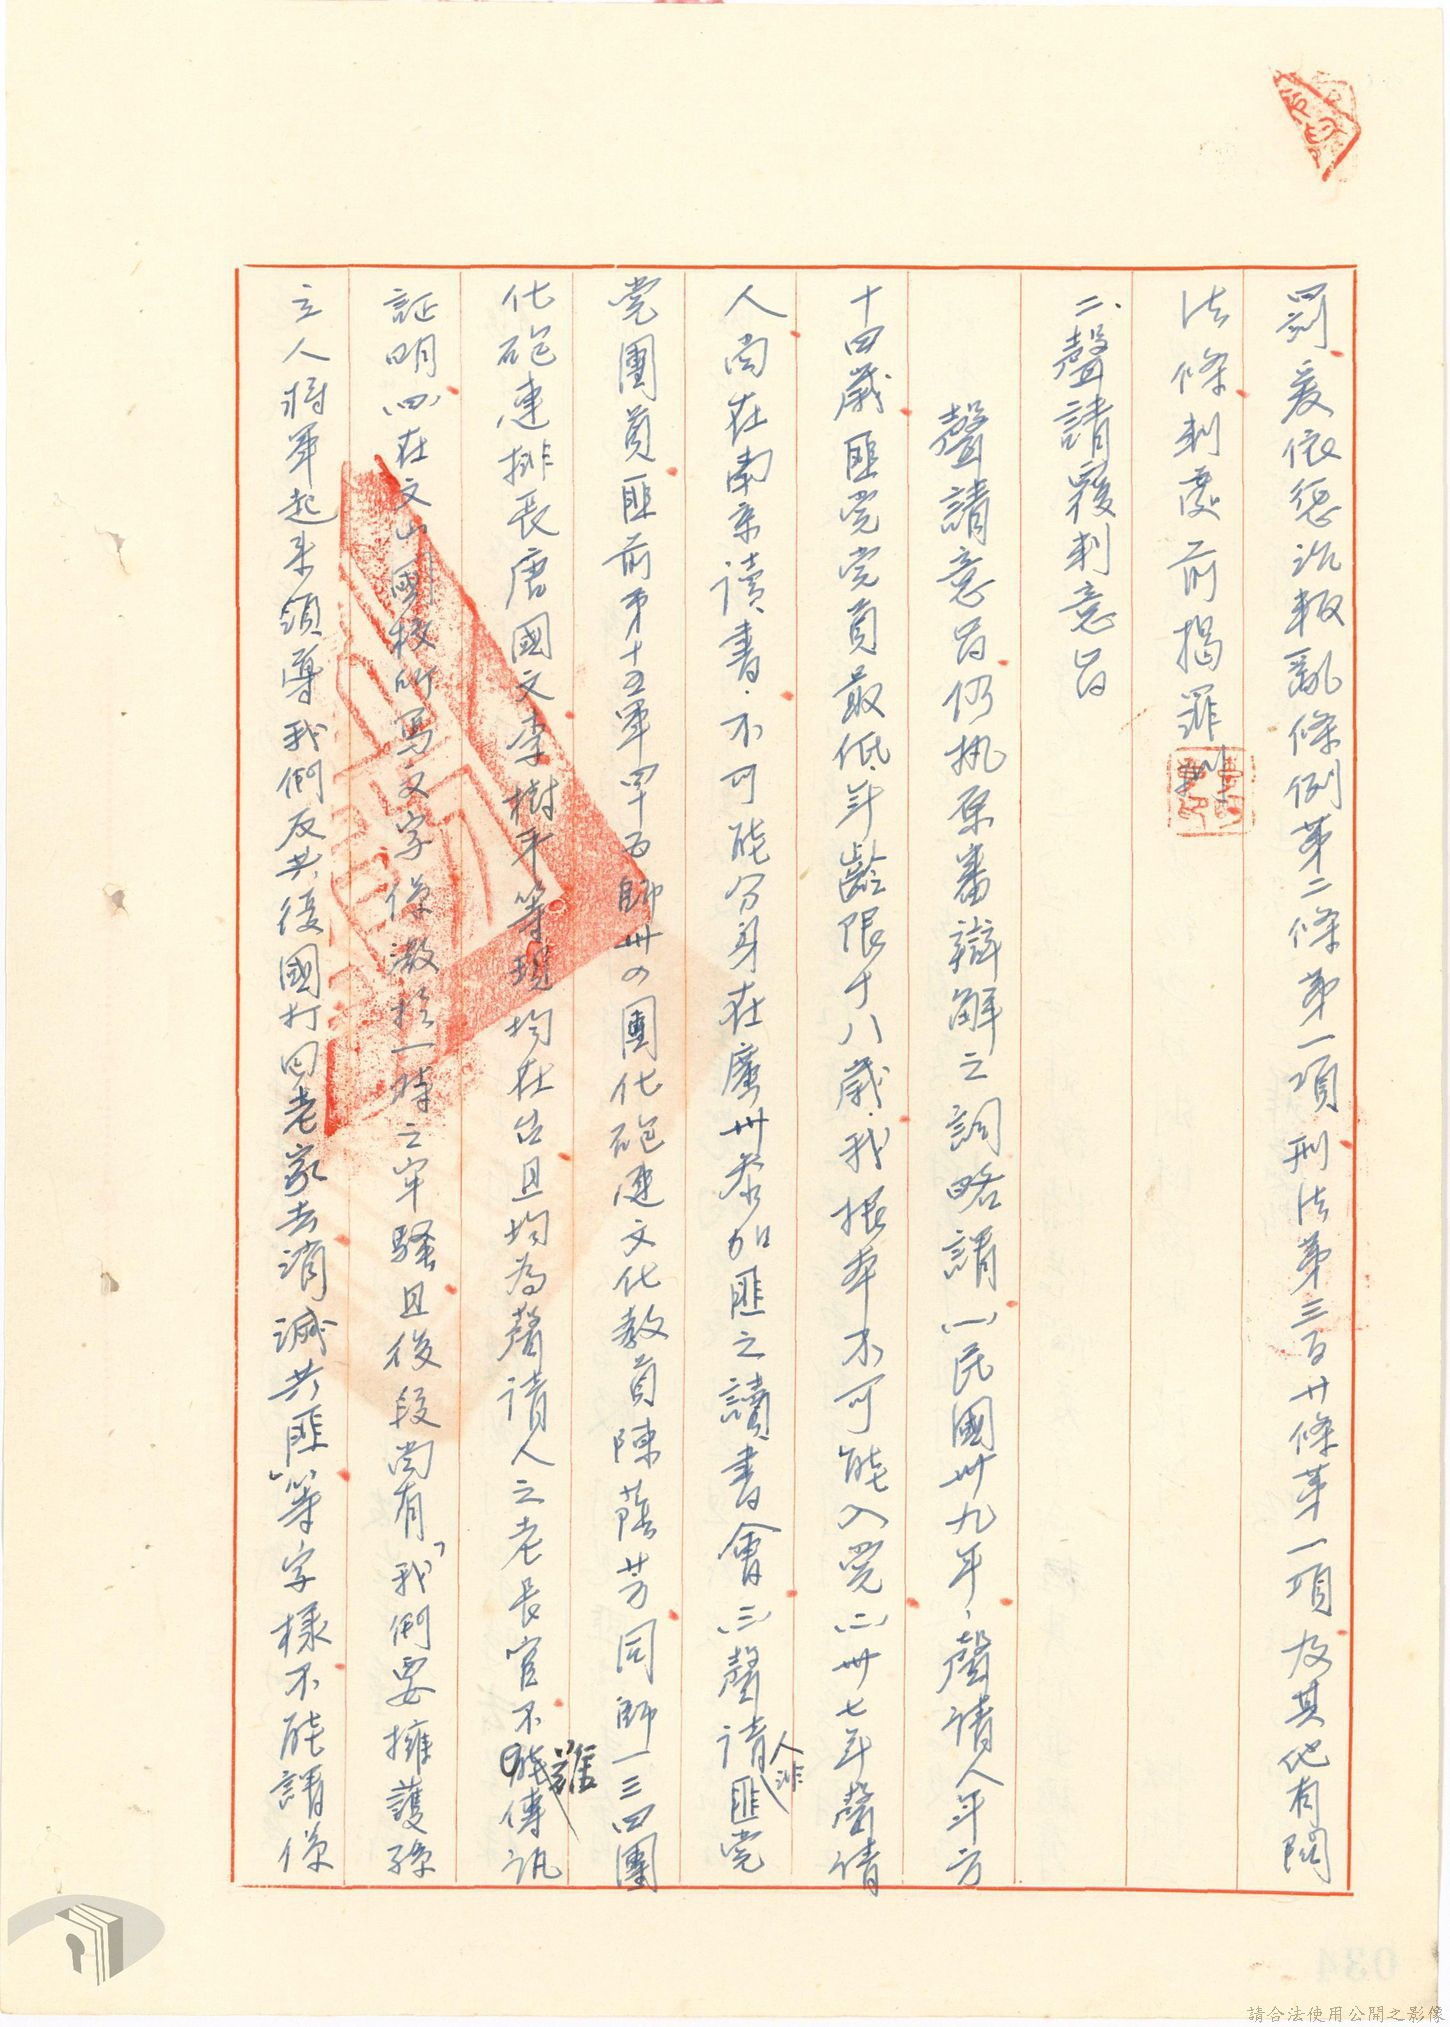 罰爰依懲治叛亂條例第二條第一項刑法第三百廿條第一項及其他有関
法條判處前揭罪刑
二、聲請覆判意旨
聲請意旨仍執原審辯解之詞略謂(一)民國卅九年，聲請人年方
十四歲匪党党員最低年齡限十八歲．我根本不可能入党(二)卅七年聲請
人尚在南京读書．不可能分身在廣州参加匪之讀書會(三)聲请人非匪党
党團員匪前第十五軍四十五師卅四團化砲連文化教員陳蔭芳同師一三四團
化砲連排長唐國文李樹平等現均在台且均為聲请人之老長官不難傳訊
証明(四)在文山國校所写文字僅激於一時之牢騷且後段尚有「我們要擁護孫
立人将軍起来領導我們反共復國打回老家去消滅共匪」等字樣不能謂僅
請合法使用公開之影像